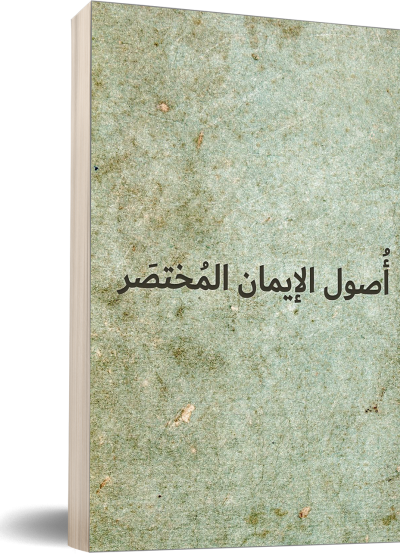 أُصول الإيمان المُختصَر